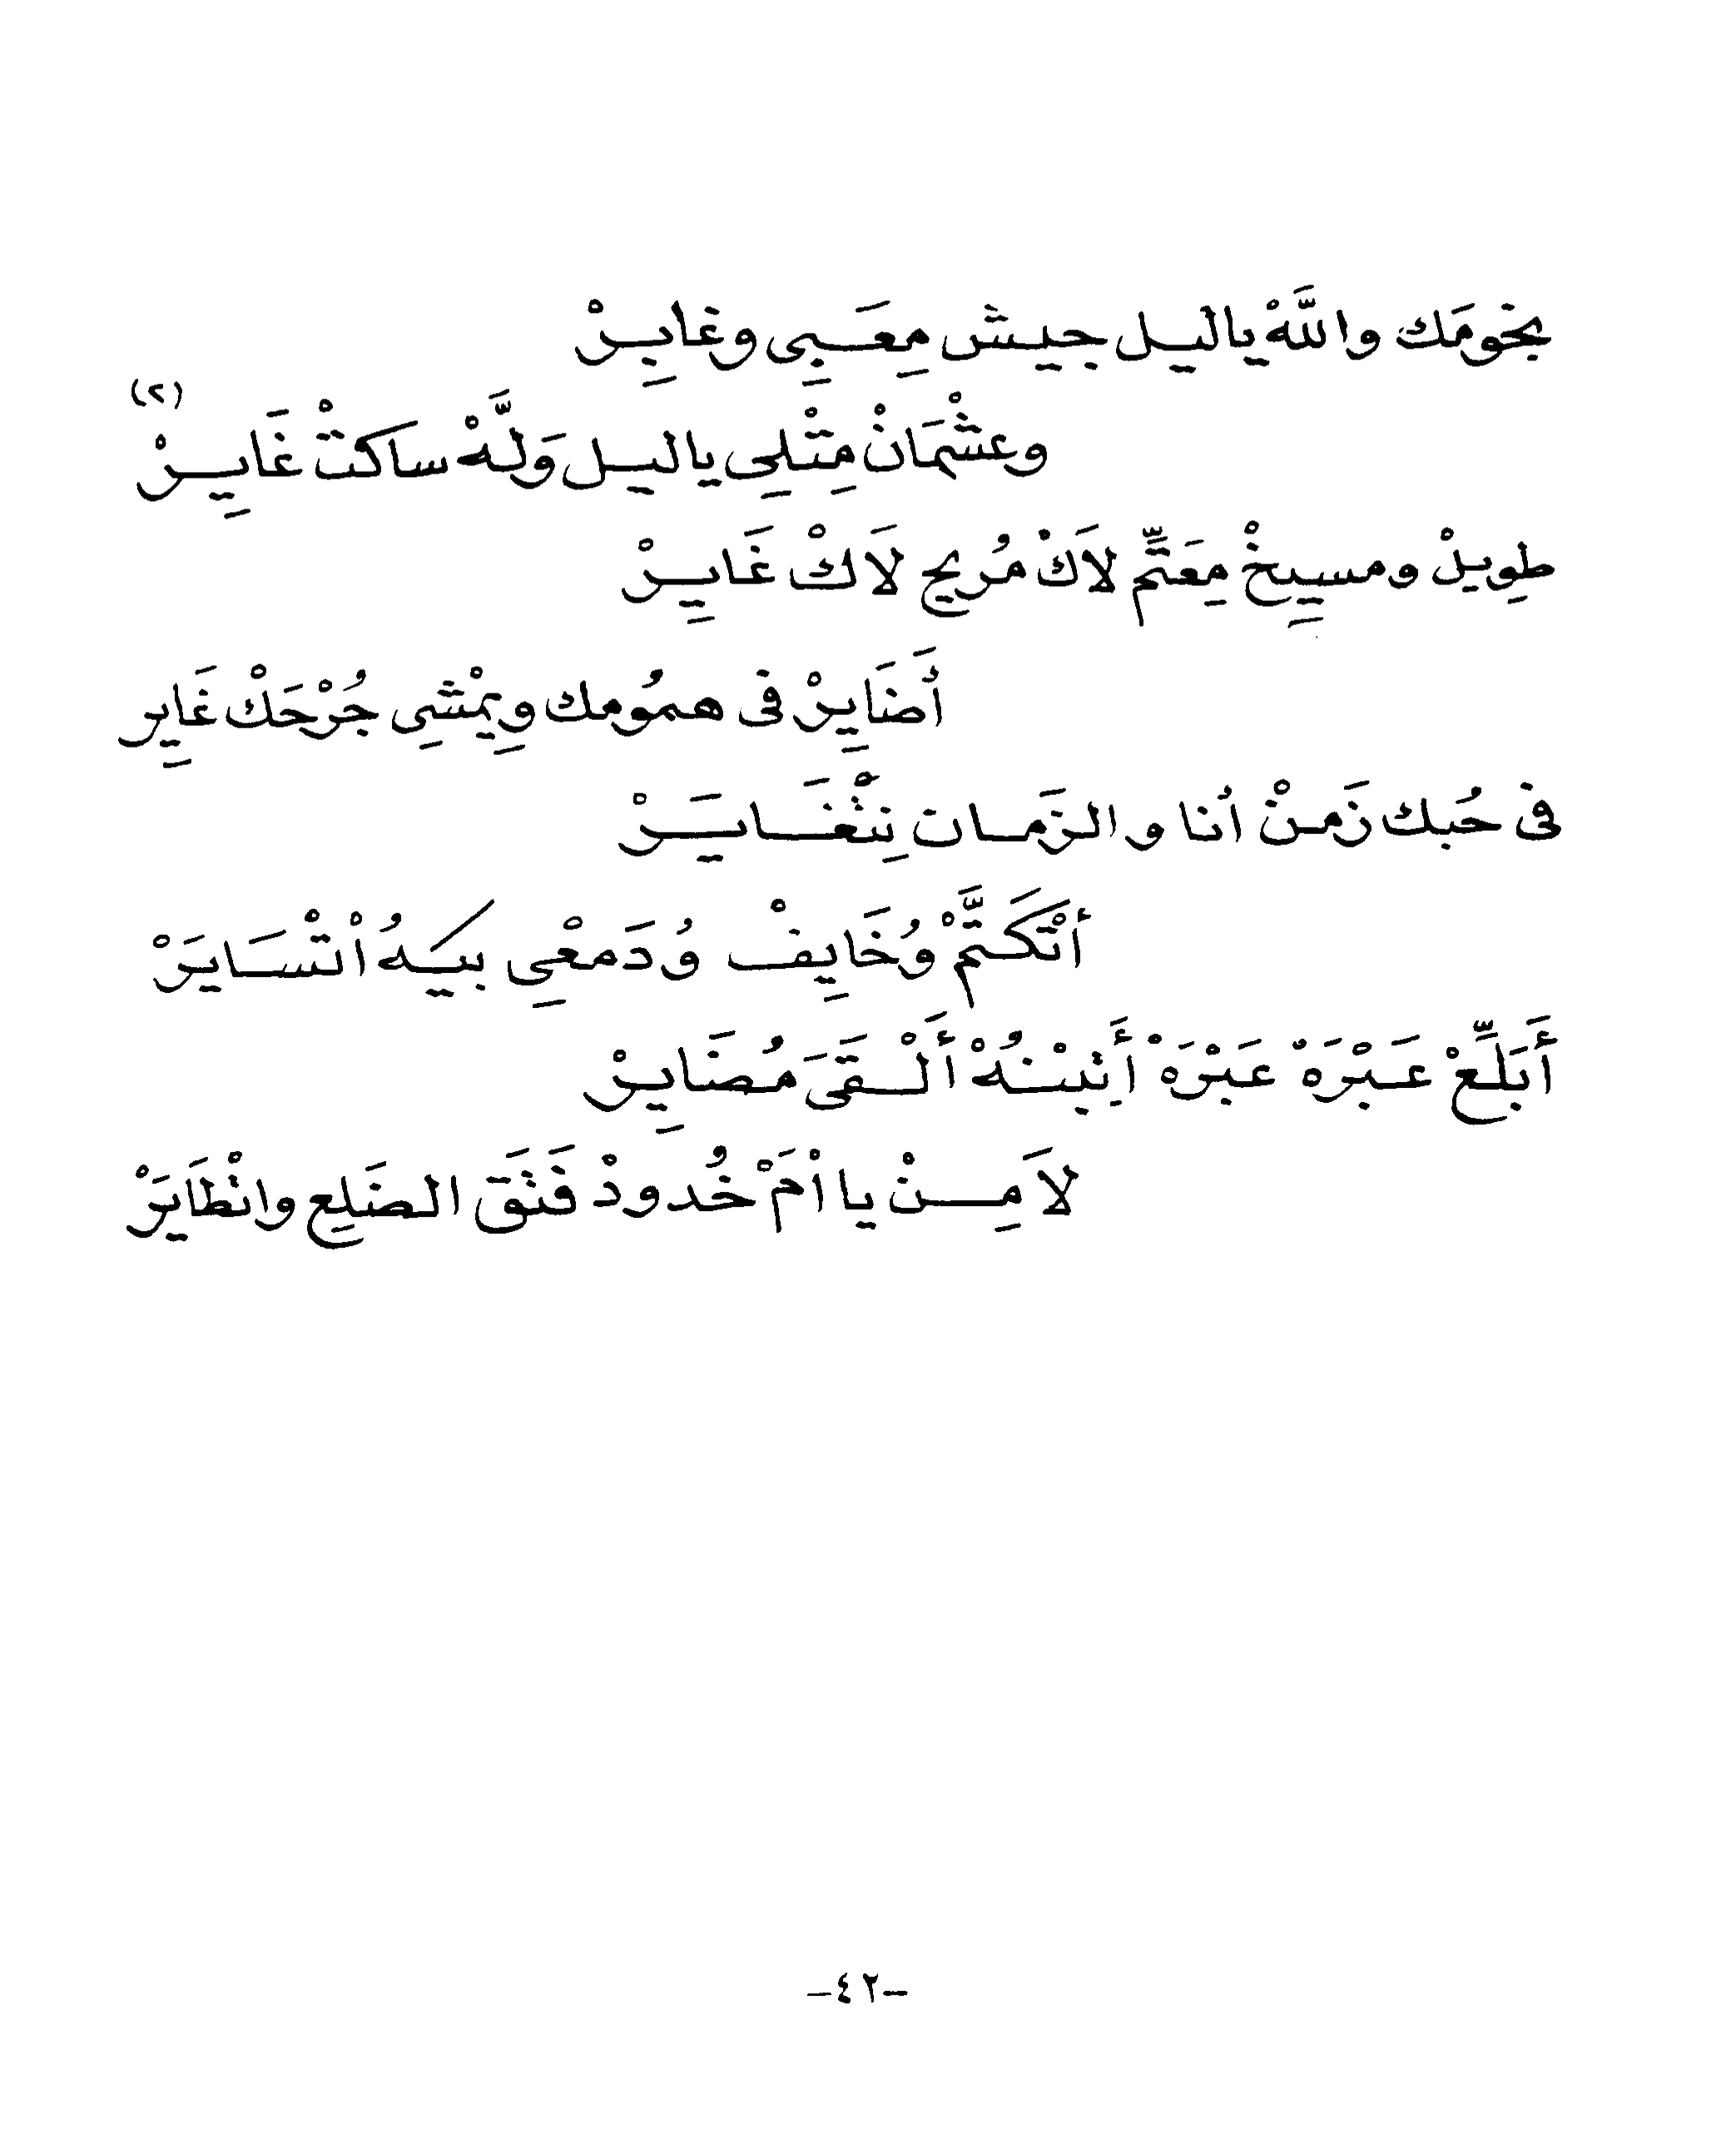 بخومَك واللَّهْ ياليل جيش مِعَبِي وغايِرْ
وعشْمَانْ مِتْلِي ياليل وَلَّهْ ساكتْ غَايِرْ (٢)
طوِيلْ ومسيِخْ مِعَتِّم لاَكْ مُريح لاَكْ غَايِرْ
أَضَايِرْ فى همُومك وِيمْشِي جُرْحَكْ غَايِر
فى حُبك زَمنْ أنا والزَمان نِتْغَايَرْ
أتْكَتَّمْ وُخَايِفْ وُدَمعْيِ بيَهُ اتْسَايَرْ
أَبَلِّعْ عَبْرَهْ عَبْرَهْ أَتِبْنُهْ أَلْقَىَ مُضَايِرْ
لاَ مِنْ يا امْ خُدودْ فَتَقَ الضَلِع وانْطَايَرْ
-٤٢-